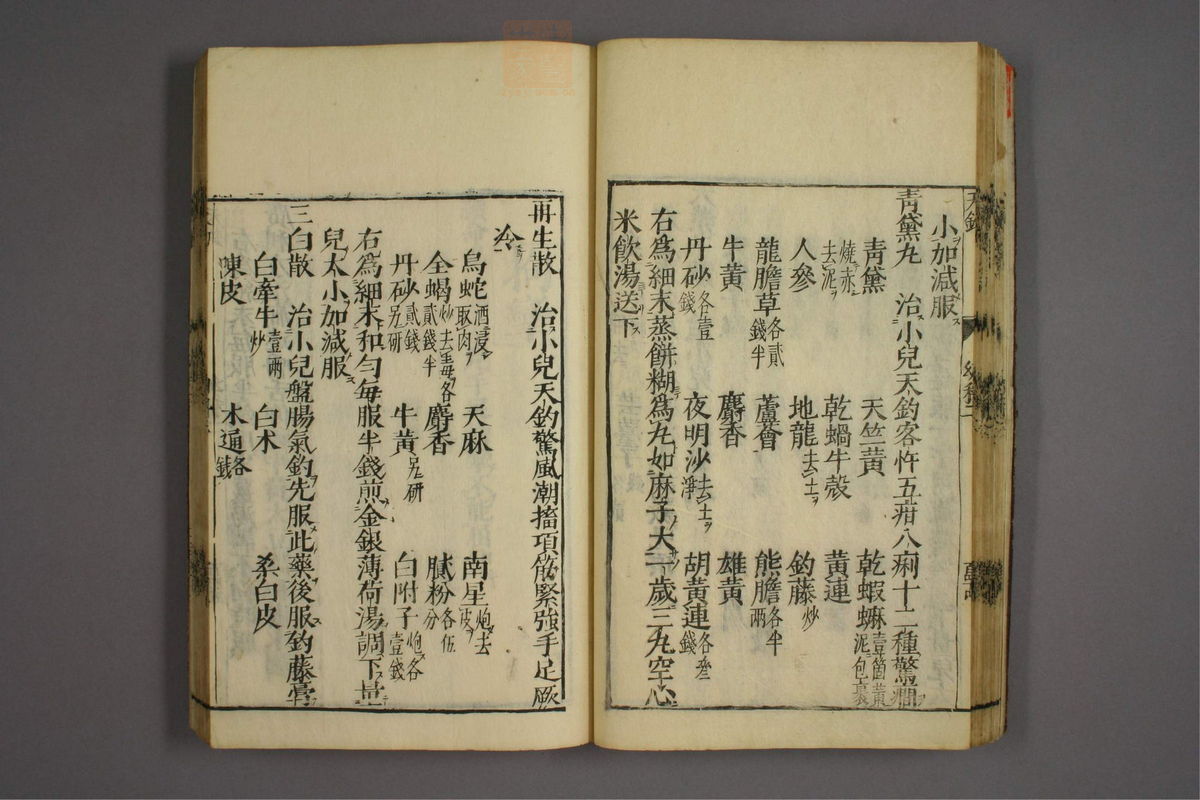 小加減服
青黛丸 治小兒天釣客忤五疳八痢十二種驚癇
青黛 天竺黃 乾蝦蟆壹箇黃泥包裹
燒赤去泥 乾蝸牛殼 黃連
人參 地龍去土 釣藤炒
龍膽草各貳錢半 蘆薈 熊膽各半兩
牛黃 麝香 雄黃
丹砂各壹錢 夜明沙去土淨 胡黃連各叄錢
右爲細末蒸餅糊爲丸如麻子大一歲三丸空心
米飲湯送下
再生散 治小兒天釣驚風潮搐項筋緊強手足厥
冷
烏蛇酒浸取肉 天麻 南星炮去皮
全蝎炒去毒各貳錢半 麝香 膩粉各伍分
丹砂貳錢另研 牛黃另研 白附子炮各壹錢
右爲細末和勻每服半錢煎金銀薄荷湯調下量
兒大小加減服
三白散 治小兒盤腸氣釣先服此藥後服釣藤膏
白牽牛壹兩炒 白术 桑白皮
陳皮 木通各錢
天釣